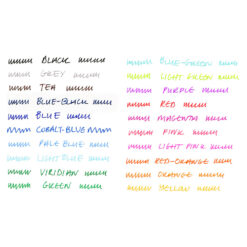 BLACK
GREY
TEA
BLUE-BLACK
BLUE
COBALT-BLUE
PALE BLUE
LIGHT BLUE
VIRIDIAN
GREEN
BLUE-GREEN
LIGHT GREEN
PURPLE
RED
MAGENTA
PINK
LIGHT PINK
RED-ORANGE
ORANGE
YELLOW